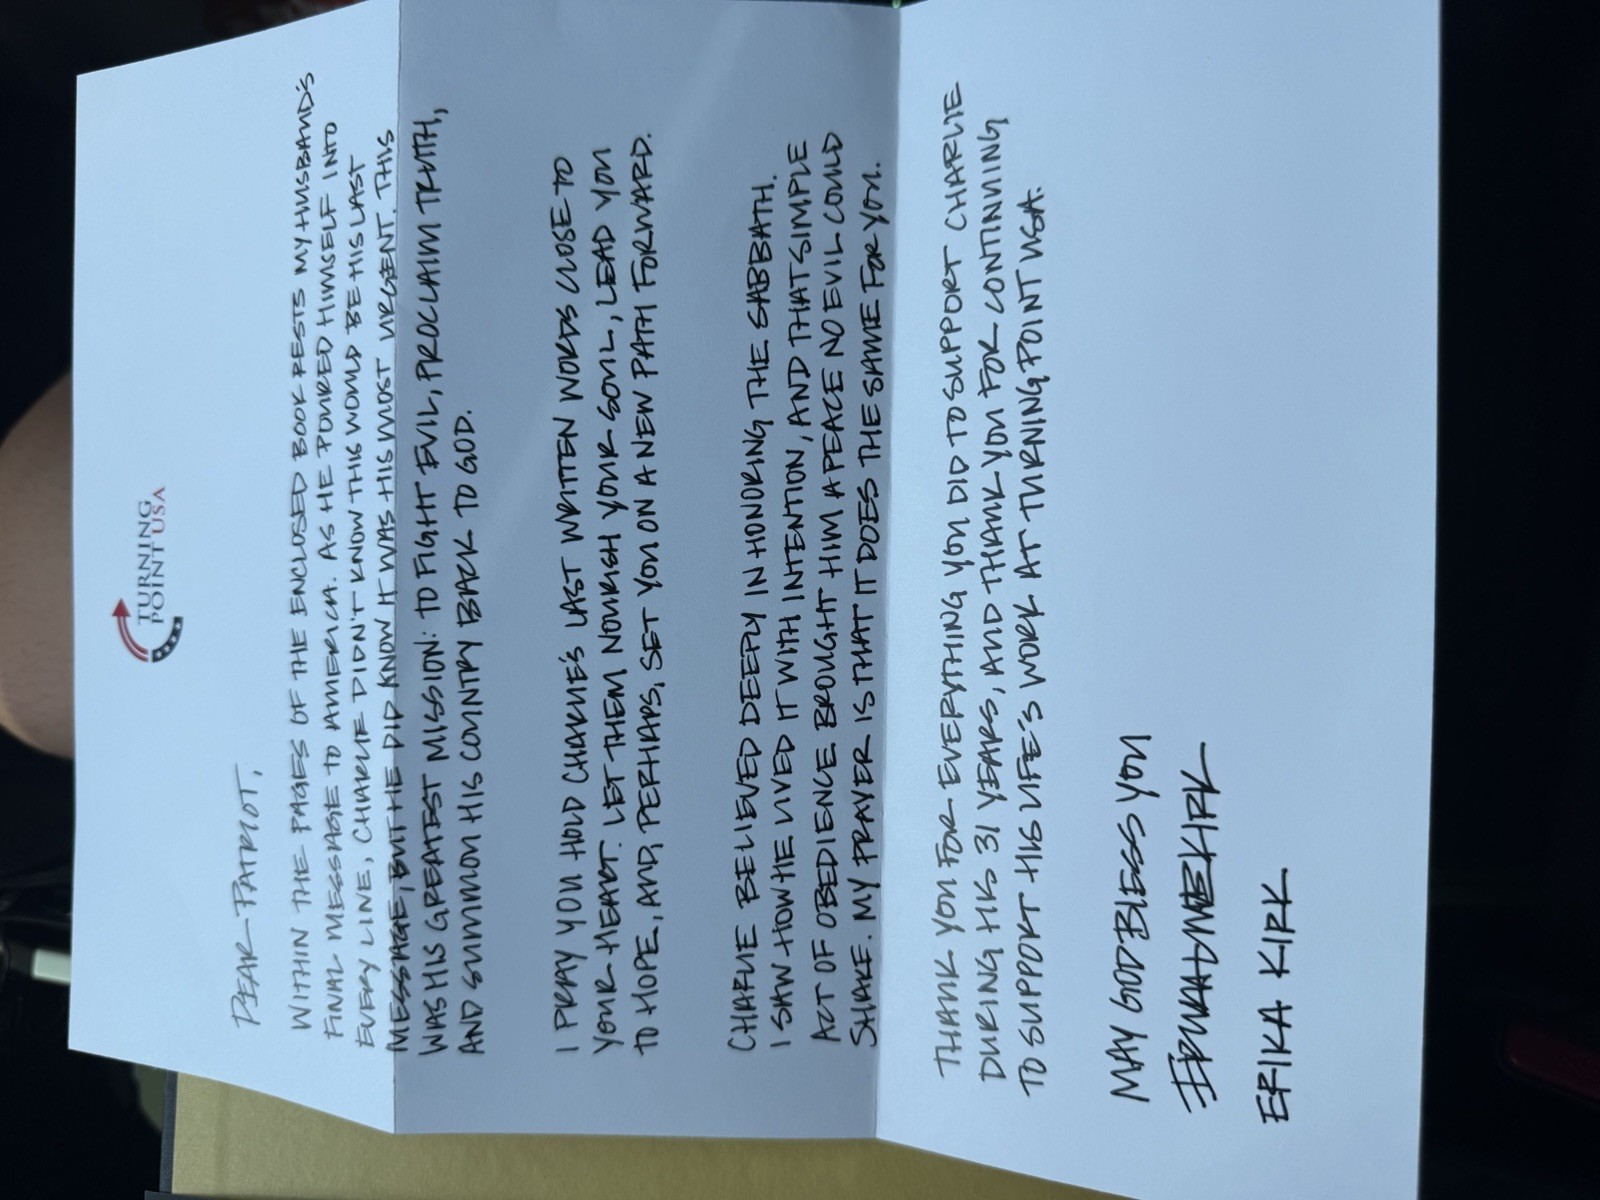 TURNING
POINT USA
DEAR PATRIOT,
WITHIN THE PAGES OF THE ENCLOSED BOOK RESTS MY HUSBAND'S
FINAL MESSAGE TO AMERICA. AS HE POURED HIMSELF INTO
EVERY LINE, CHARLIE DIDN'T KNOW THIS WOULD BE HIS LAST
MESSAGE, BUT HE DID KNOW IT WAS HIS MOST URGENT. THIS
WAS HIS GREATEST MISSION: TO FIGHT EVIL, PROCLAIM TRUTH,
AND SUMMON HIS COUNTRY BACK TO GOD.
I PRAY YOU HOLD CHARLIE'S LAST WRITTEN WORDS CLOSE TO
YOUR HEART. LET THEM NOURISH YOUR SOUL, LEAD YOU
TO HOPE, AND, PERHAPS, SET YOU ON A NEW PATH FORWARD.
CHARLIE BELIEVED DEEPLY IN HONORING THE SABBATH.
I SAW HOW HE LIVED IT WITH INTENTION, AND THAT SIMPLE
ACT OF OBEDIENCE BROUGHT HIM A PEACE NO EVIL COULD
SHAKE. MY PRAYER IS THAT IT DOES THE SAME FOR YOU.
THANK YOU FOR EVERYTHING YOU DID TO SUPPORT CHARLIE
DURING HIS 31 YEARS, AND THANK YOU FOR CONTINUING
TO SUPPORT HIS LIFE'S WORK AT TURNING POINT USA.
MAY GOD BLESS YOU
ERIKA KIRK